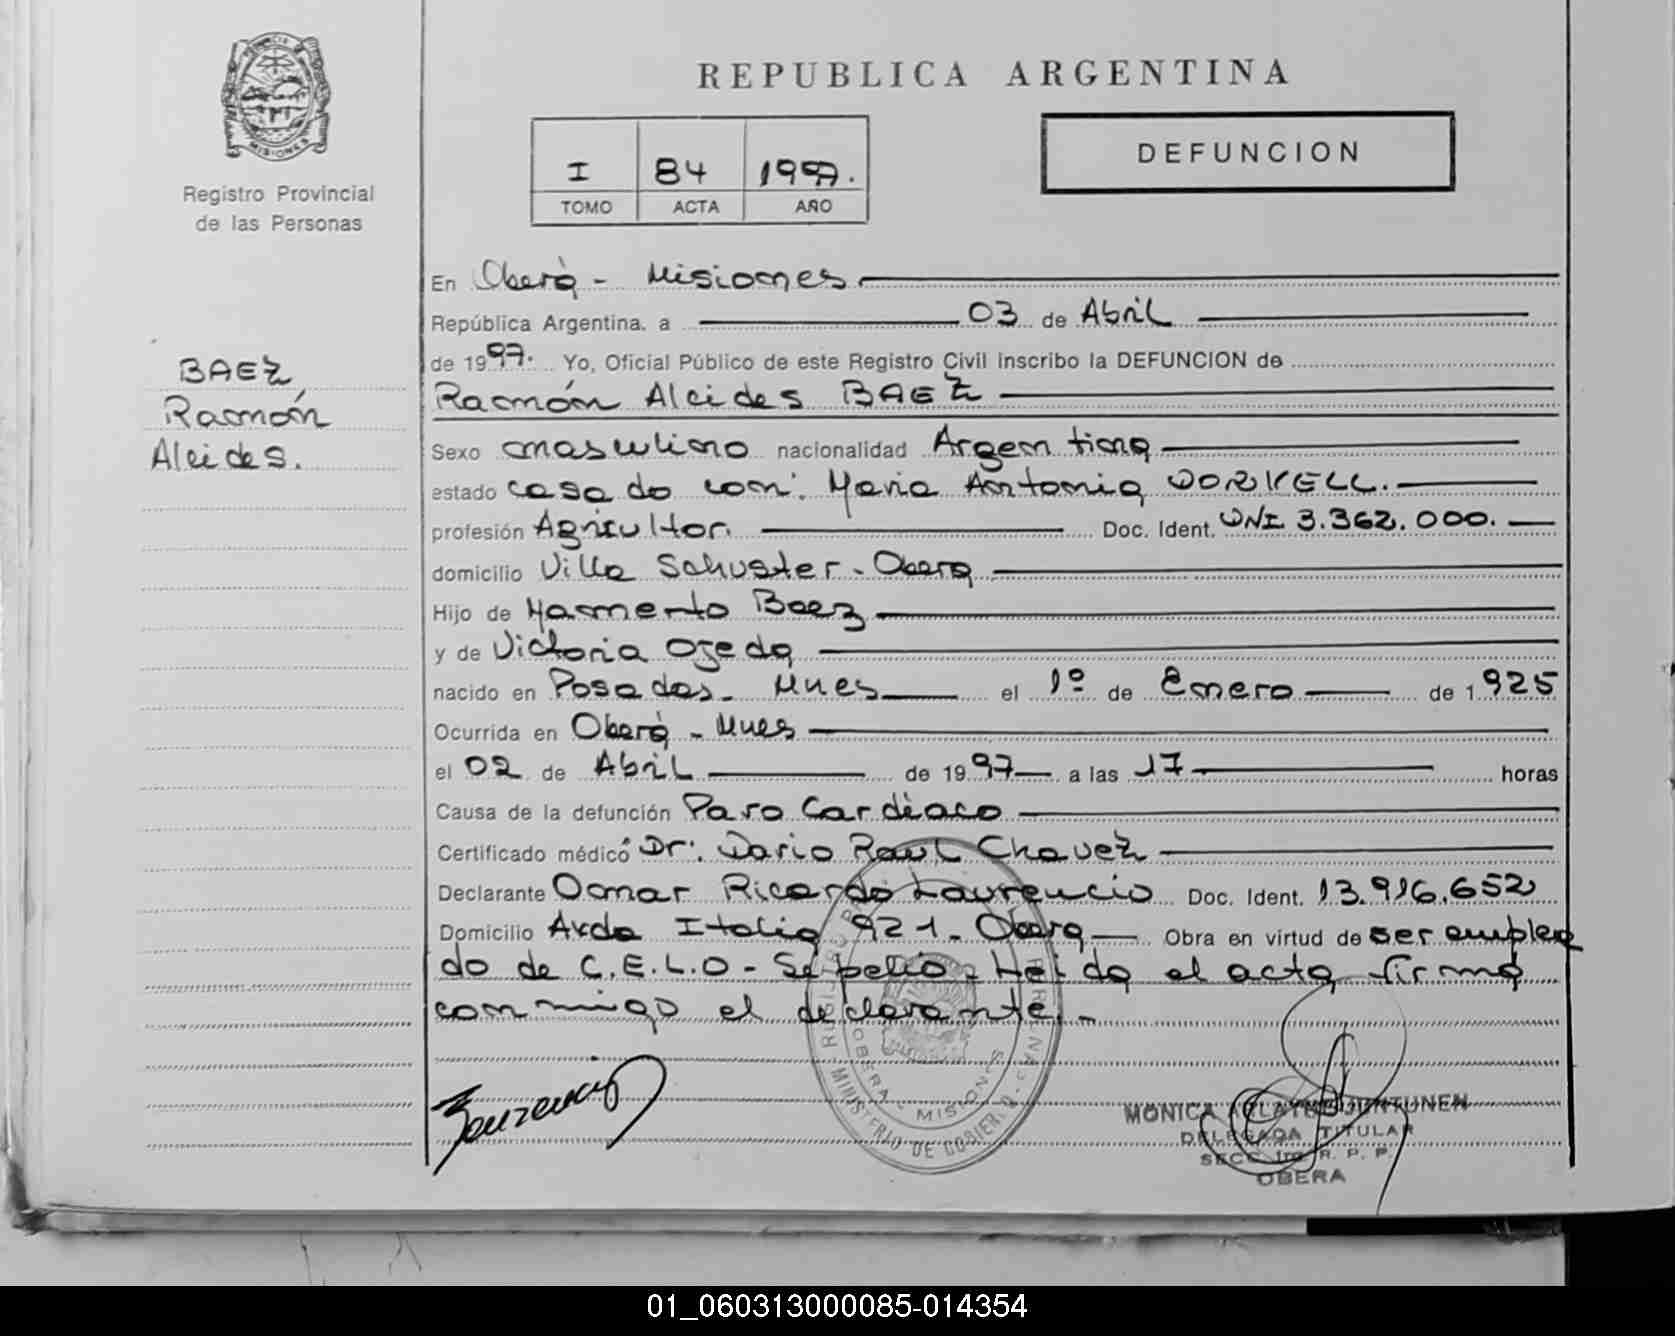 PROVINCIA DE
MISIONES
Registro Provincial
de las Personas
REPUBLICA ARGENTINA
I 84 1997.
TOMO ACTA AÑO
DEFUNCION
BAEZ,
Ramón
Alcides.
En Oberá - Misiones.
República Argentina. a 03 de Abril
de 1997. Yo, Oficial Público de este Registro Civil inscribo la DEFUNCION de
Ramón Alcides BAEZ
Sexo masculino nacionalidad Argentina
estado casado con: Maria Antonia DORVELL.
profesión Agricultor. Doc. Ident. DNI 3.362.000.
domicilio Villa Schuster - Obera
Hijo de Mamerto Baez
y de Victoria Ojeda
nacido en Posadas - Mnes el 1º de Enero de 1.925
Ocurrida en Oberá - Mnes
el 02 de Abril de 1997 a las 17 horas
Causa de la defunción Paro Cardiaco
Certificado médico Dr. Dario Raul Chavez
Declarante Omar Ricardo Laurencio Doc. Ident. 13.916.652
Domicilio Avda Italia 921 - Obera Obra en virtud de ser emplea
do de C.E.L.O - Sépelio - Leida el acta firma
conmigo el declarante. -
OBERA - MISIONES
MINISTERIO DE GOBIERNO
MONICA JUNTUNEN
DELEGADA TITULAR
SECC. 1ra R. P. P.
OBERA
01_060313000085-014354